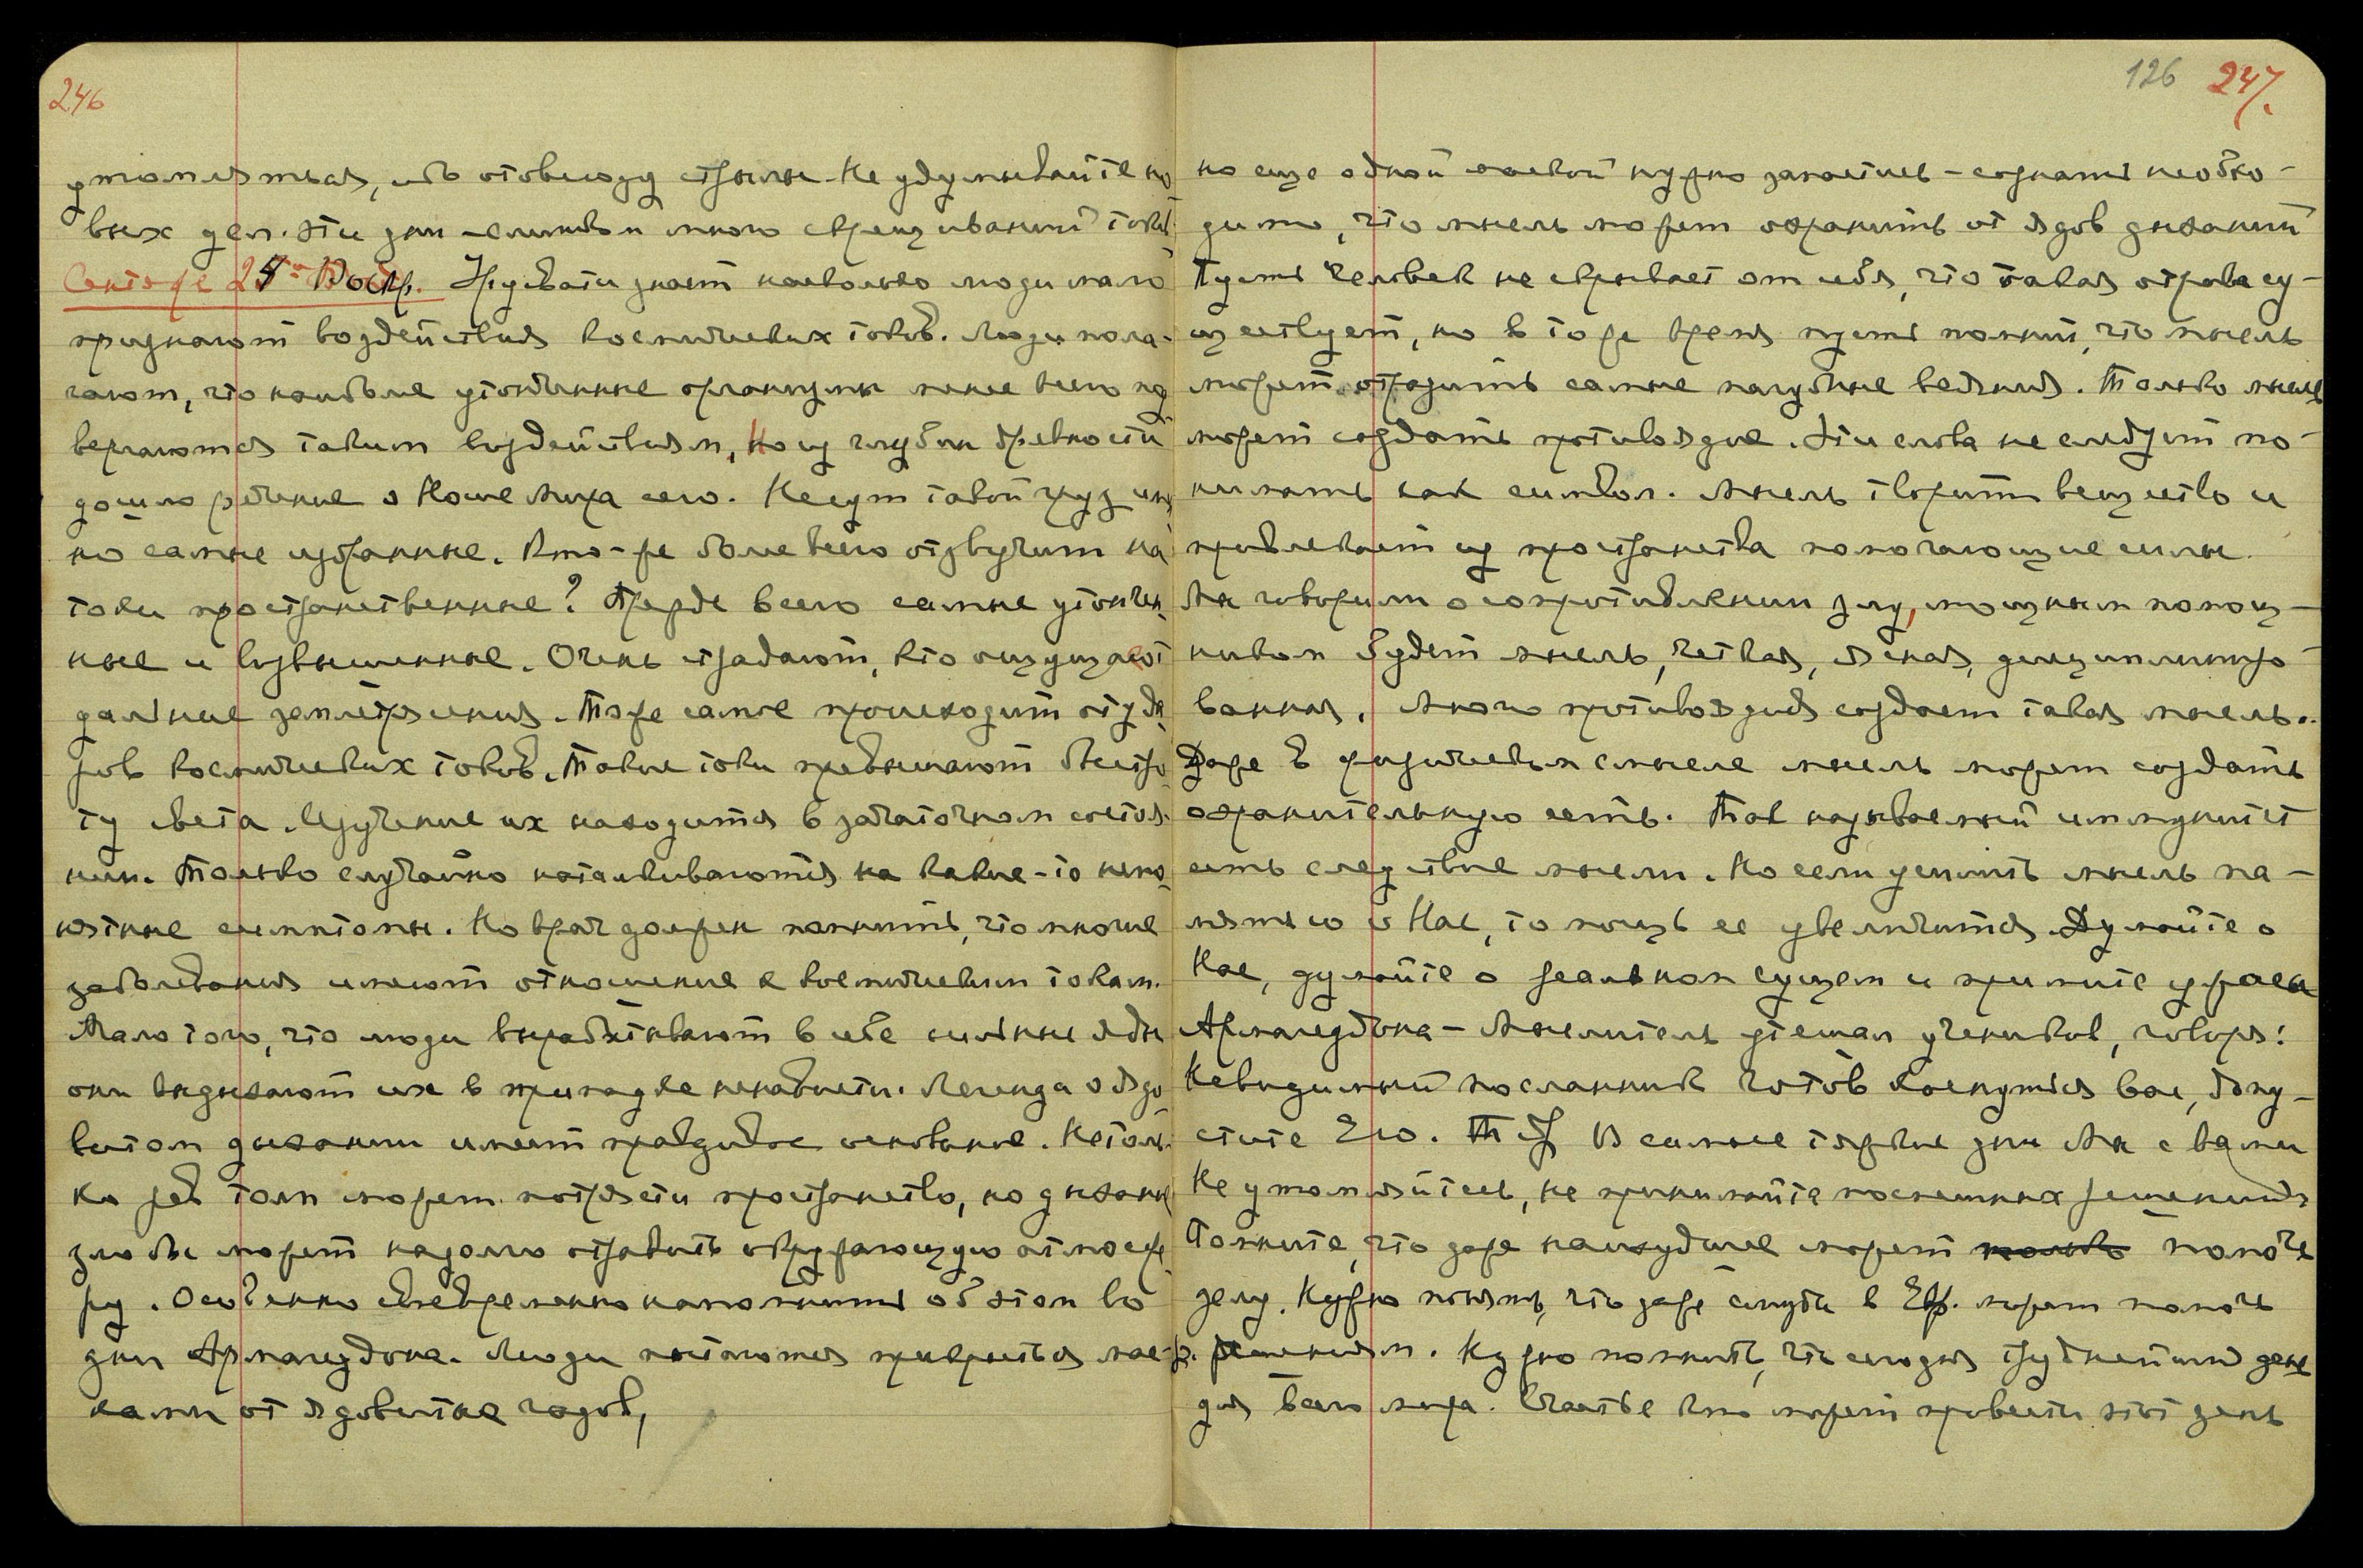 246
утомляться, ибо отовсюду стрелы. Не удумывайте но
вых дел. Эти дни слишком много скрещиваний токов
Сентябре 25го Воскр. Урусвати знает насколько люди мало
признают воздействия космических токов. Люди пола-
гают, что наиболее утонченные организмы менее всего под
вергаются таким воздействиям, Но из глубин древности
дошло речение о Ноше Мира сего. Несут такой груз имен
но самые избранные. Кто-же более всего отзвучит на
токи пространственные? Прежде всего самые утончен
ные и возвышенные. Очень страдают, кто ощущает
дальные землетрясения. Тоже самое происходит от уда
ров космических токов. Такие токи превышают быстро
ту света. Изучение их находится в зачаточном состоя-
нии. Только случайно наталкиваются на какие-то непо
нятные симптомы. Но врач должен помнить, что многие
заболевания имеют отношение к космическим токам.
Мало того, что люди вырабатывают в себе сильные яды
они выдыхают их в припадке ненависти. Легенда о ядо
витом дыхании имеет правдивое основание. Не толь-
ко рев толп может потрясти пространство, но дыхание
злобы может надолго отравить окружающую атмосфе
ру. Особенно своевременно напомнить об этом во
дни Армагеддона. Люди пытаются прикрыться мас-
ками от ядовитых газов,
126 247.
но еще одной маской нужно запастись - сознать необхо-
димо, что мысль может охранить от ядов дыханий
Пусть человек не скрывает от себя, что такая отрава су-
ществует, но в то же время пусть помнит, что мысль
может отразить самые пагубные веяния. Только мысль
может создать противоядие. Эти слова не следует по-
нимать как символ. Мысль творит вещество и
привлекает из пространства помогающие силы.
Мы говорили о сопротивлении злу, мощным помощ-
ником будет мысль, четкая, ясная, дисциплиниро
ванная. Много противоядия создает такая мысль.
Даже в физическом смысле мысль может создать
охранительную сеть. Так называемый иммунитет
есть следствие мысли. Но если усилить мысль па-
мятью о Нас, то мощь ее увеличится. Думайте о
Нас, думайте о реальном Сущем и примите ужасы
Армагеддона - Мыслитель утешал учеников, говоря:
Невидимый посланник готов коснуться вас, допу-
стите Его. В самые тяжкие дни Мы с вами
Не утомляйтесь, не принимайте поспешных решений
Помните, что даже наихудшее может только помочь
делу. Нужно понять, что даже смута в Евр. может помочь
решениям. Нужно помнить, что сегодня труднейший день
для всего мира. Счастье кто может провести этот день